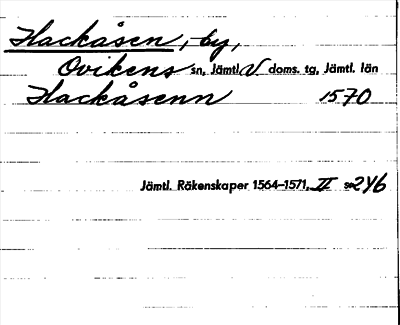 Hackåsen, by,
Ovikens sn, Jämtl. V. doms. tg, Jämtl. län
Hackåsenn 1570
Jämtl. Räkenskaper 1564–1571, II s. 246